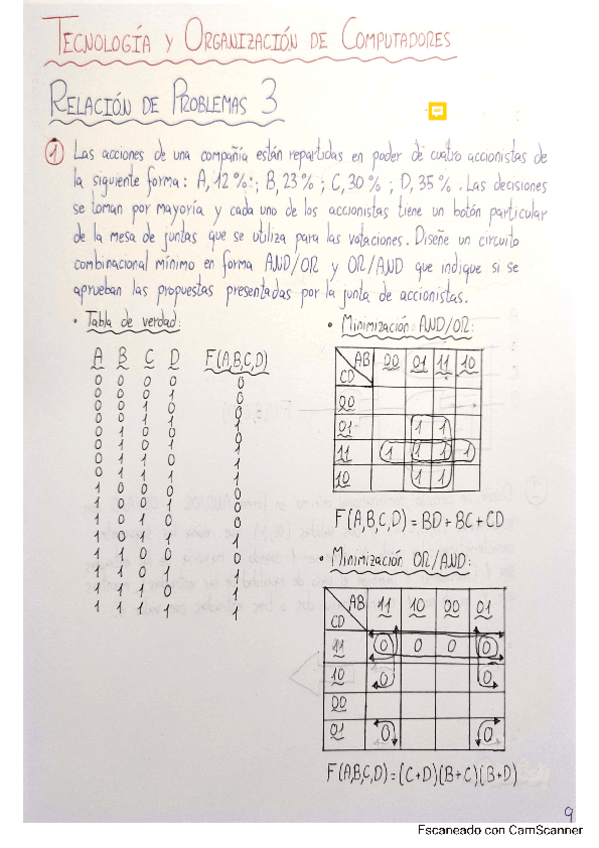 TECNOLOGÍA Y ORGANIZACIÓN DE COMPUTADORES
RELACIÓN DE PROBLEMAS 3
① Las acciones de una compañía están repartidas en poder de cuatro accionistas de
la siguiente forma: A, 12%; B, 23%; C, 30%; D, 35%. Las decisiones
se toman por mayoría y cada uno de los accionistas tiene un botón particular
de la mesa de juntas que se utiliza para las votaciones. Diseñe un circuito
combinacional mínimo en forma AND/OR y OR/AND que indique si se
aprueban las propuestas presentadas por la junta de accionistas.
• Tabla de verdad:
A B C D F(A,B,C,D)
0 0 0 0 0
0 0 0 1 0
0 0 1 0 0
0 0 1 1 1
0 1 0 0 0
0 1 0 1 1
0 1 1 0 1
0 1 1 1 1
1 0 0 0 0
1 0 0 1 0
1 0 1 0 0
1 0 1 1 1
1 1 0 0 0
1 1 0 1 1
1 1 1 0 1
1 1 1 1 1
• Minimización AND/OR:
AB 00 01 11 10
CD
00
01 1 1
11 1 1 1 1
10 1 1
F(A,B,C,D) = BD + BC + CD
• Minimización OR/AND:
AB 11 10 00 01
CD
11 0 0 0 0
10 0 0
00
01 0 0
F(A,B,C,D) = (C+D)(B+C)(B+D)
9
Escaneado con CamScanner